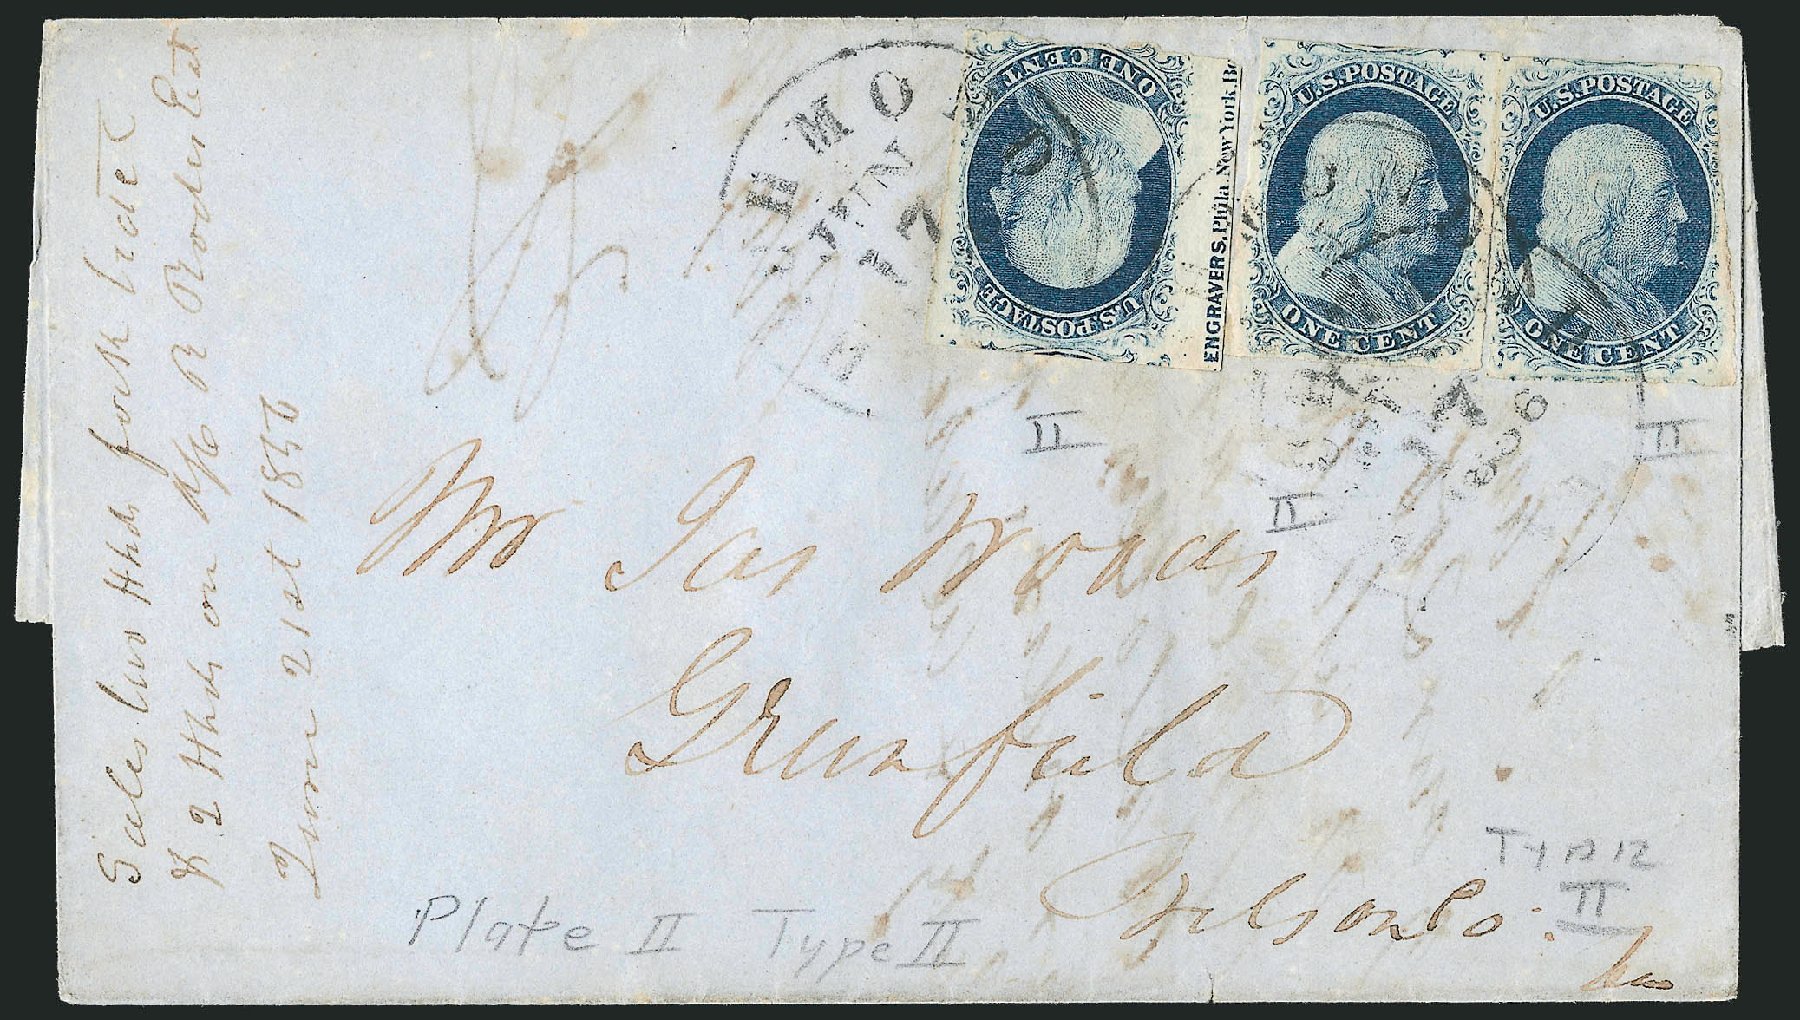 ONE CENT
U.S. POSTAGE
ENGRAVERS. Phila. New York. Bo
U.S. POSTAGE
ONE CENT
U.S. POSTAGE
ONE CENT
HMOND
JUN
17
1856
II
II
II
Mr Jas Woods
Greenfield
Nelson Co:
Type
II
Plate II Type II
Sales two Hhds for
& 2 Hhds on a/c R Rodes Est
June 21st 1856